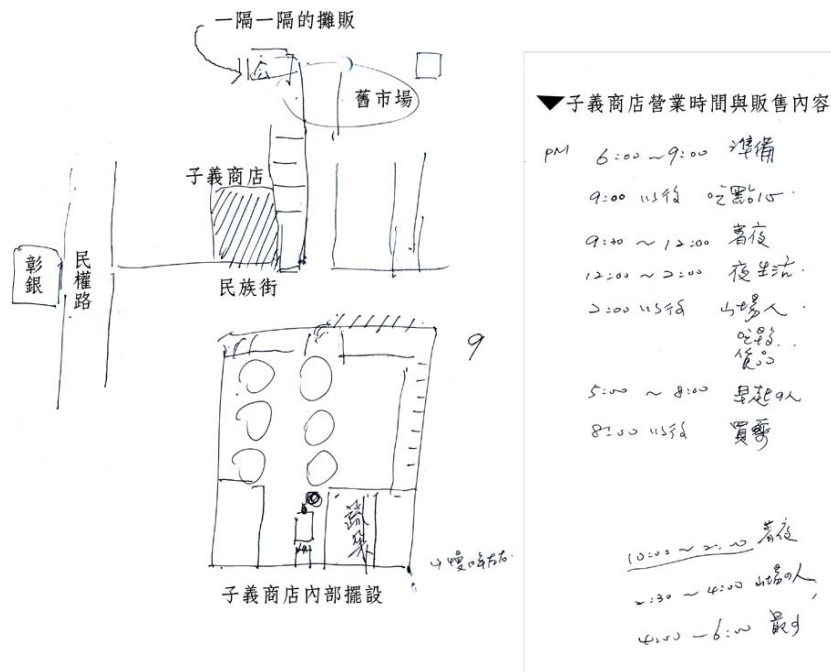 一隔一隔的攤販
舊市場
子義商店
彰銀
民權路
民族街
9
蔬菜
子義商店內部擺設
▼子義商店營業時間與販售內容
PM 6:00 ~ 9:00 準備
9:00 以後 吃點心
9:30 ~ 12:00 宵夜
12:00 ~ 2:00 夜生活
2:00 以後 市場人
吃點
5:00 ~ 8:00 早起的人
8:00 以後 買
10:00 ~ 2:00 宵夜
2:30 ~ 4:00 市場的人
4:00 ~ 6:00 最少